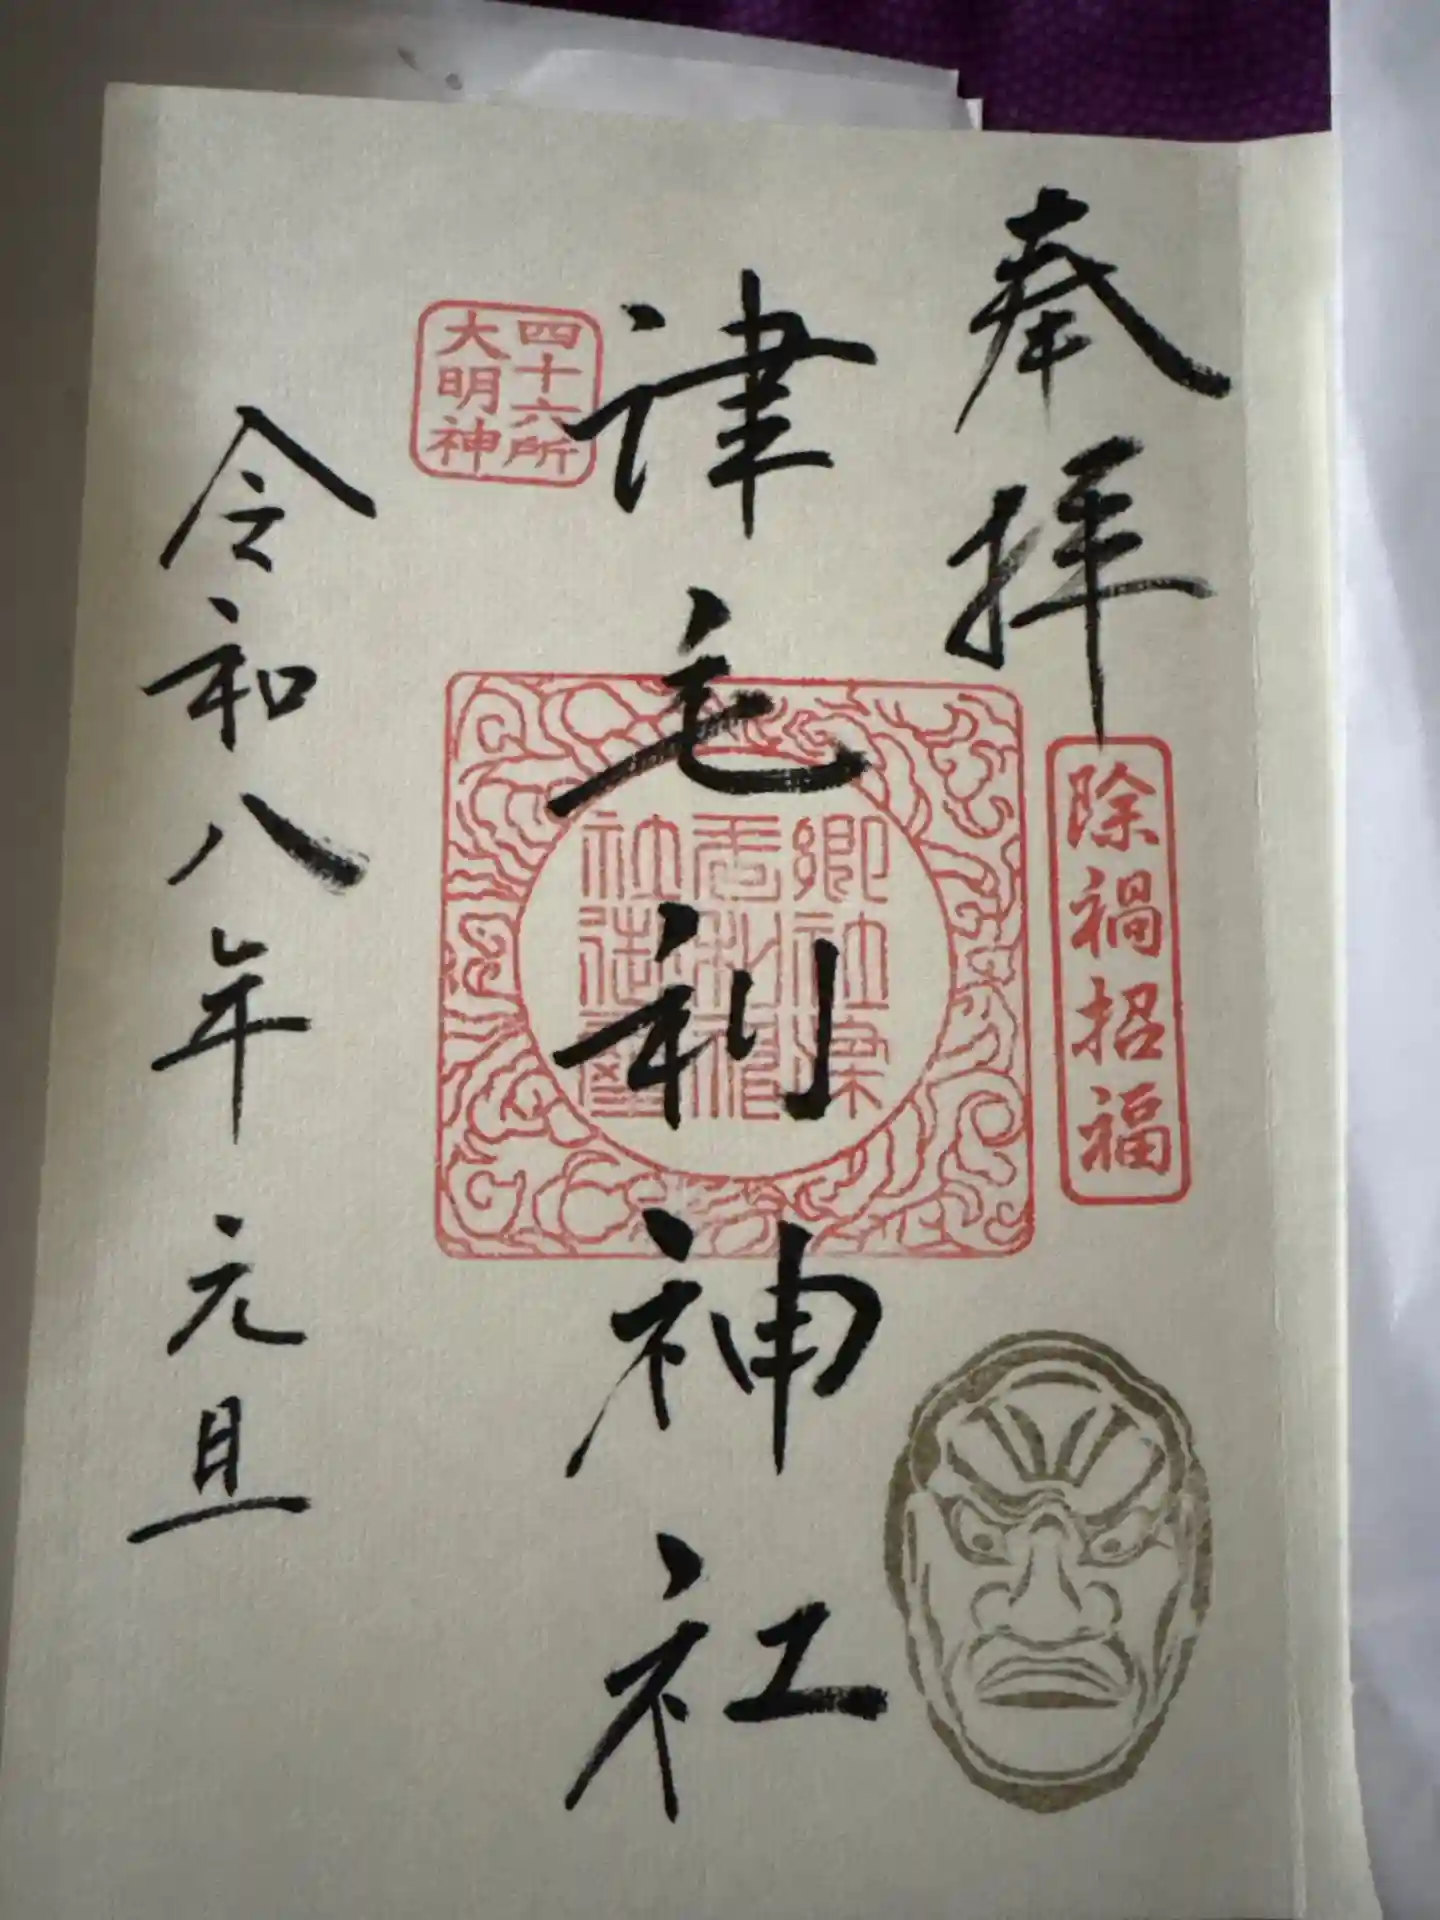 奉拝
除禍招福
津毛利神社
四十六所
大明神
令和八年元旦